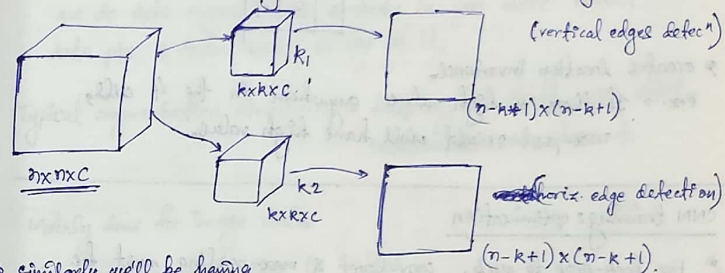 (vertical edges detecⁿ)
k1
k×k×c
(n-k+1)×(n-k+1)
n×n×c
k2
k×k×c
(horiz. edge detection)
(n-k+1)×(n-k+1)
similarly we'll be having